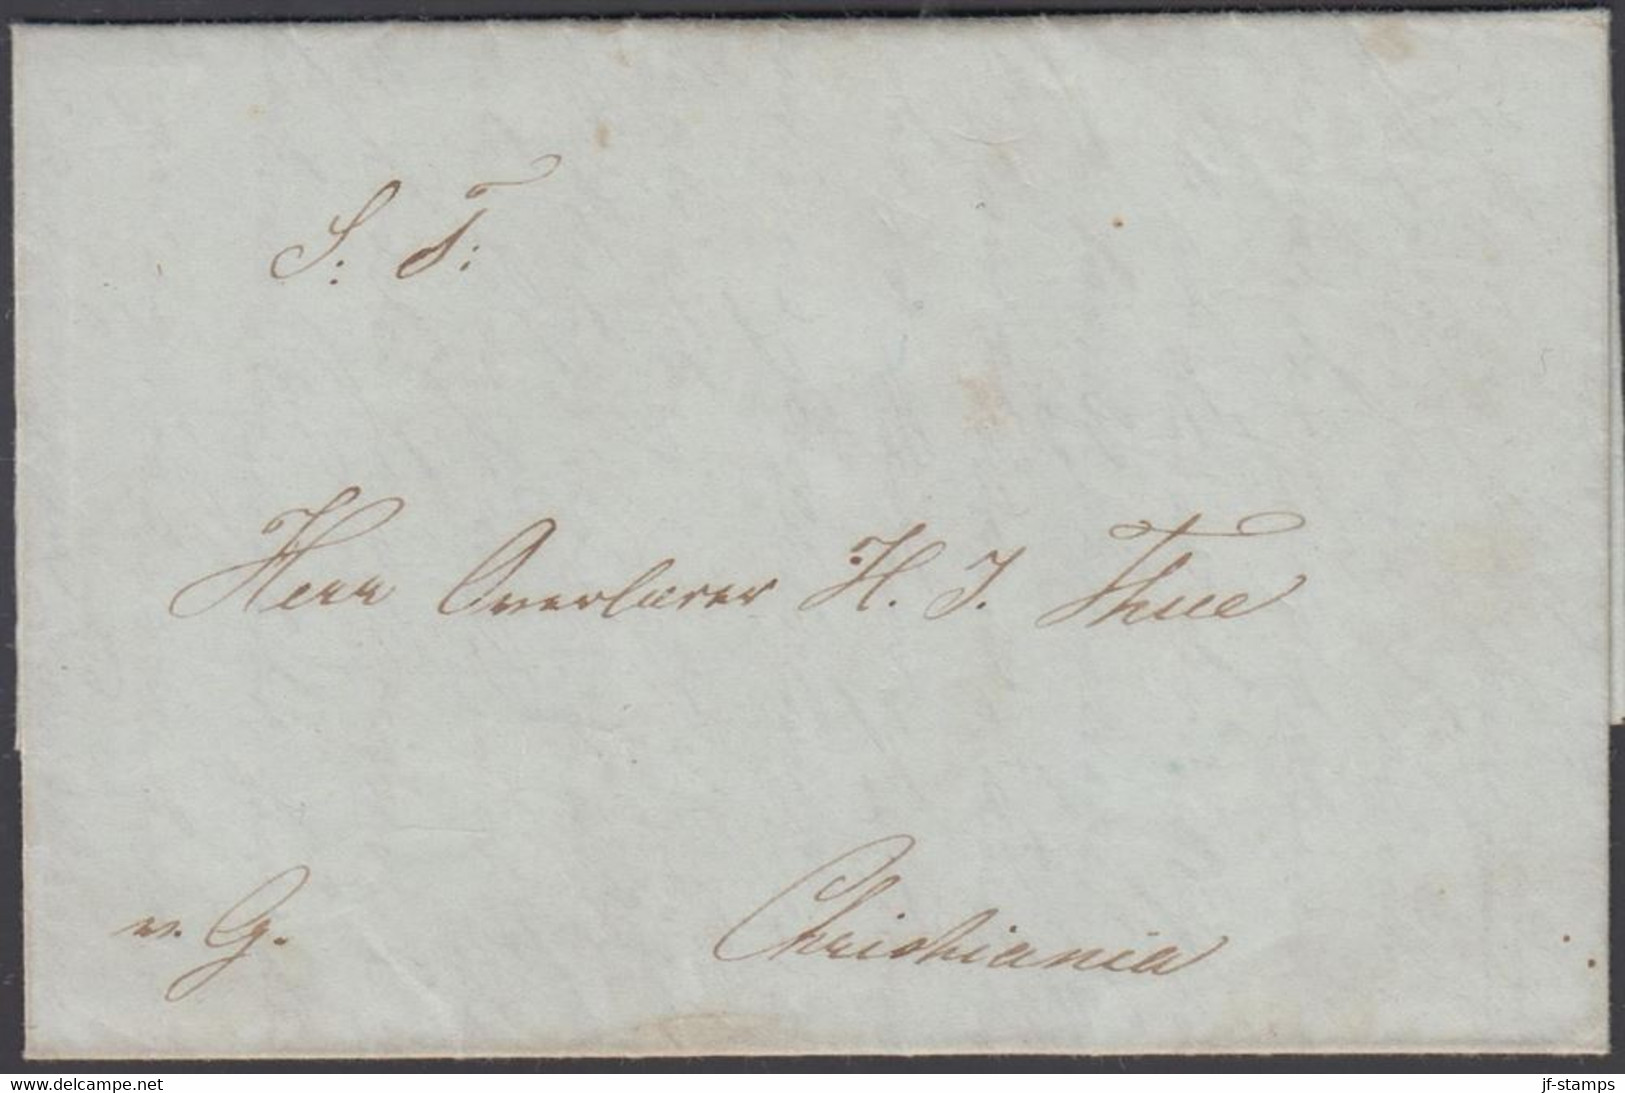 S. T:
Herr Overlærer H. J. Thue
v. G.
Christiania
www.delcampe.net
jf-stamps